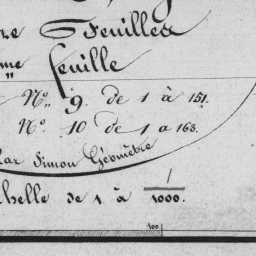 re 5 Feuilles
me feuille
N° 9. de 1 à 151.
N° 10 de 1 a 163.
Par Simon Géomètre
helle de 1 à 1/1000.
100